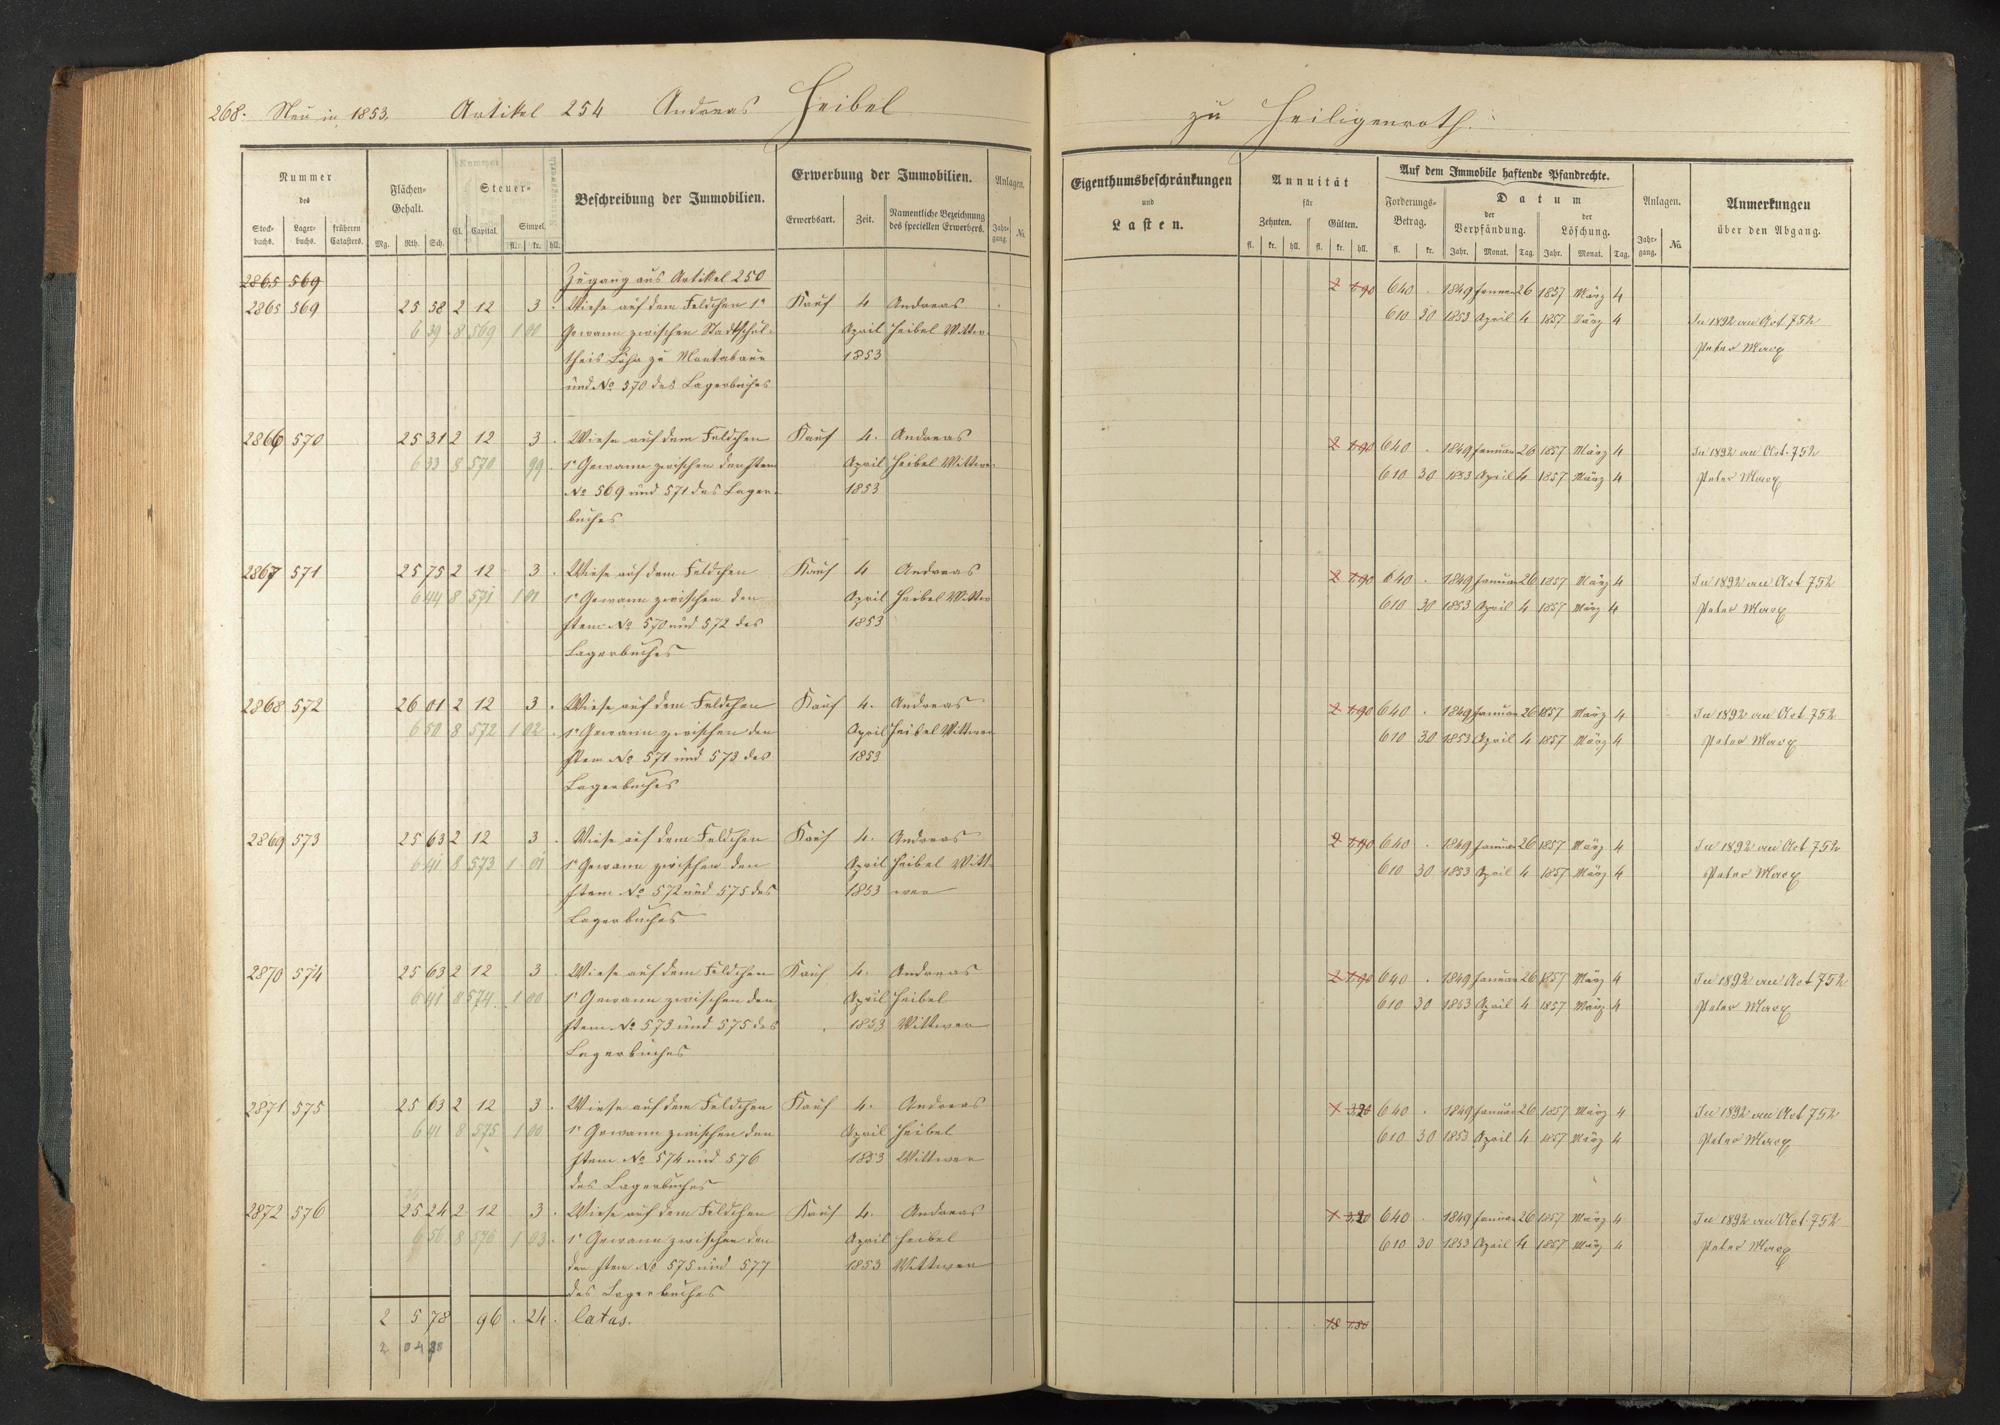 268. Neu in 1853. Artikel 254 Andreas Heibel zu Heiligenroth.
Nummer
des
Stock-buchs. Lager-buchs. früheren Catasters.
Flächen-Gehalt.
Mg. Rth. Sch.
Steuer-
Cl. Capital. Simpel.
fl. kr. hll.
Beschreibung der Immobilien.
Erwerbung der Immobilien.
Erwerbsart. Zeit. Namentliche Bezeichnung des speciellen Erwerbers.
Anlagen.
Jahr-gang. No.
Eigenthumsbeschränkungen
und
Lasten.
Annuität
für
Zehnten. Gülten.
fl. kr. hll. fl. kr. hll.
Auf dem Immobile haftende Pfandrechte.
Forderungs-Betrag.
fl. kr.
Datum
der Verpfändung. der Löschung.
Jahr. Monat. Tag. Jahr. Monat. Tag.
Anlagen.
Jahr-gang. No.
Anmerkungen
über den Abgang.
2865 569 Zugang aus Artikel 250
2865 569 25 58 2 12 3 . Wiese auf dem Feldchen 1r Kauf 4 Andreas 2 1.90 640 . 1849 Januar 26 1857 März 4
6 39 8 569 1 00 Gewann zwischen Stadtschul- April Heibel Wittwe 610 30 1853 April 4 1857 März 4 In 1892 an Art 752
theis Löhr zu Montabaur 1853 Peter Marx
und No 570 des Lagerbuches
2866 570 25 31 2 12 3 . Wiese auf dem Feldchen Kauf 4. Andreas 2 1.90 640 . 1849 Januar 26 1857 März 4 In 1892 an Art. 752
6 33 8 570 99 . 1r Gewann zwischen denstem April Heibel Wittwer 610 30 1853 April 4 1857 März 4 Peter Marx
No 569 und 571 des Lager- 1853
buches
2867 571 25 75 2 12 3 . Wiese auf dem Feldchen Kauf 4 Andreas 2 1.90 640 . 1849 Januar 26 1857 März 4 In 1892 an Art 752
6 44 8 571 1 01 1r Gewann zwischen den April Heibel Wittw 610 30 1853 April 4 1857 März 4 Peter Marx
stem No 570 und 572 des 1853
Lagerbuches
2868 572 26 01 2 12 3 . Wiese auf dem Feldchen Kauf 4. Andreas 2 1.90 640 . 1849 Januar 26 1857 März 4 In 1892 an Art 752
6 50 8 572 1 02 . 1r Gewann zwischen den April Heibel Wittwer 610 30 1853 April 4 1857 März 4 Peter Marx
stem No 571 und 573 des 1853
Lagerbuches
2869 573 25 63 2 12 3 . Wiese auf dem Feldchen Kauf 4. Andreas 2 1.90 640 . 1849 Januar 26 1857 März 4 In 1892 an Art 752
6 41 8 573 1 01 1r Gewann zwischen den April Heibel Witt 610 30 1853 April 4 1857 März 4 Peter Marx
stem No 572 und 575 des 1853 wer
Lagerbuches
2870 574 25 63 2 12 3 . Wiese auf dem Feldchen Kauf 4. Andreas 2 1.90 640 . 1849 Januar 26 1857 März 4 In 1892 an Art 752
6 41 8 574 1 00 1r Gewann zwischen den April Heibel 610 30 1853 April 4 1857 März 4 Peter Marx
stem No 573 und 575 des 1853 Wittwer
Lagerbuches
2871 575 25 63 2 12 3 . Wiese auf dem Feldchen Kauf 4. Andreas 640 . 1849 Januar 26 1857 März 4 In 1892 an Art 752
6 41 8 575 1 00 1r Gewann zwischen den April Heibel 610 30 1853 April 4 1857 März 4 Peter Marx
stem No 574 und 576 1853 Wittwer
des Lagerbuches
2872 576 25 24 2 12 3 . Wiese auf dem Feldchen Kauf 4. Andreas 640 . 1849 Januar 26 1857 März 4 In 1892 an Art 752
6 56 8 576 1 03 . 1r Gewann zwischen den April Heibel 610 30 1853 April 4 1857 März 4 Peter Marx
den stem No 575 und 577 1853 Wittwer
des Lagerbuches
2 5 78 96 . 24 . Latus.